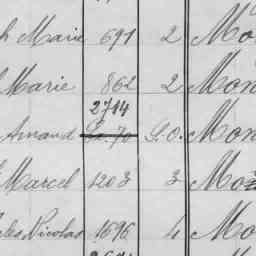 h Marie 691 2 Mo
Marie 862 2 Mon
2714
Armand S.O. Mon
Marcel 1203 3 Mo
les Nicolas 1696 4 Mo